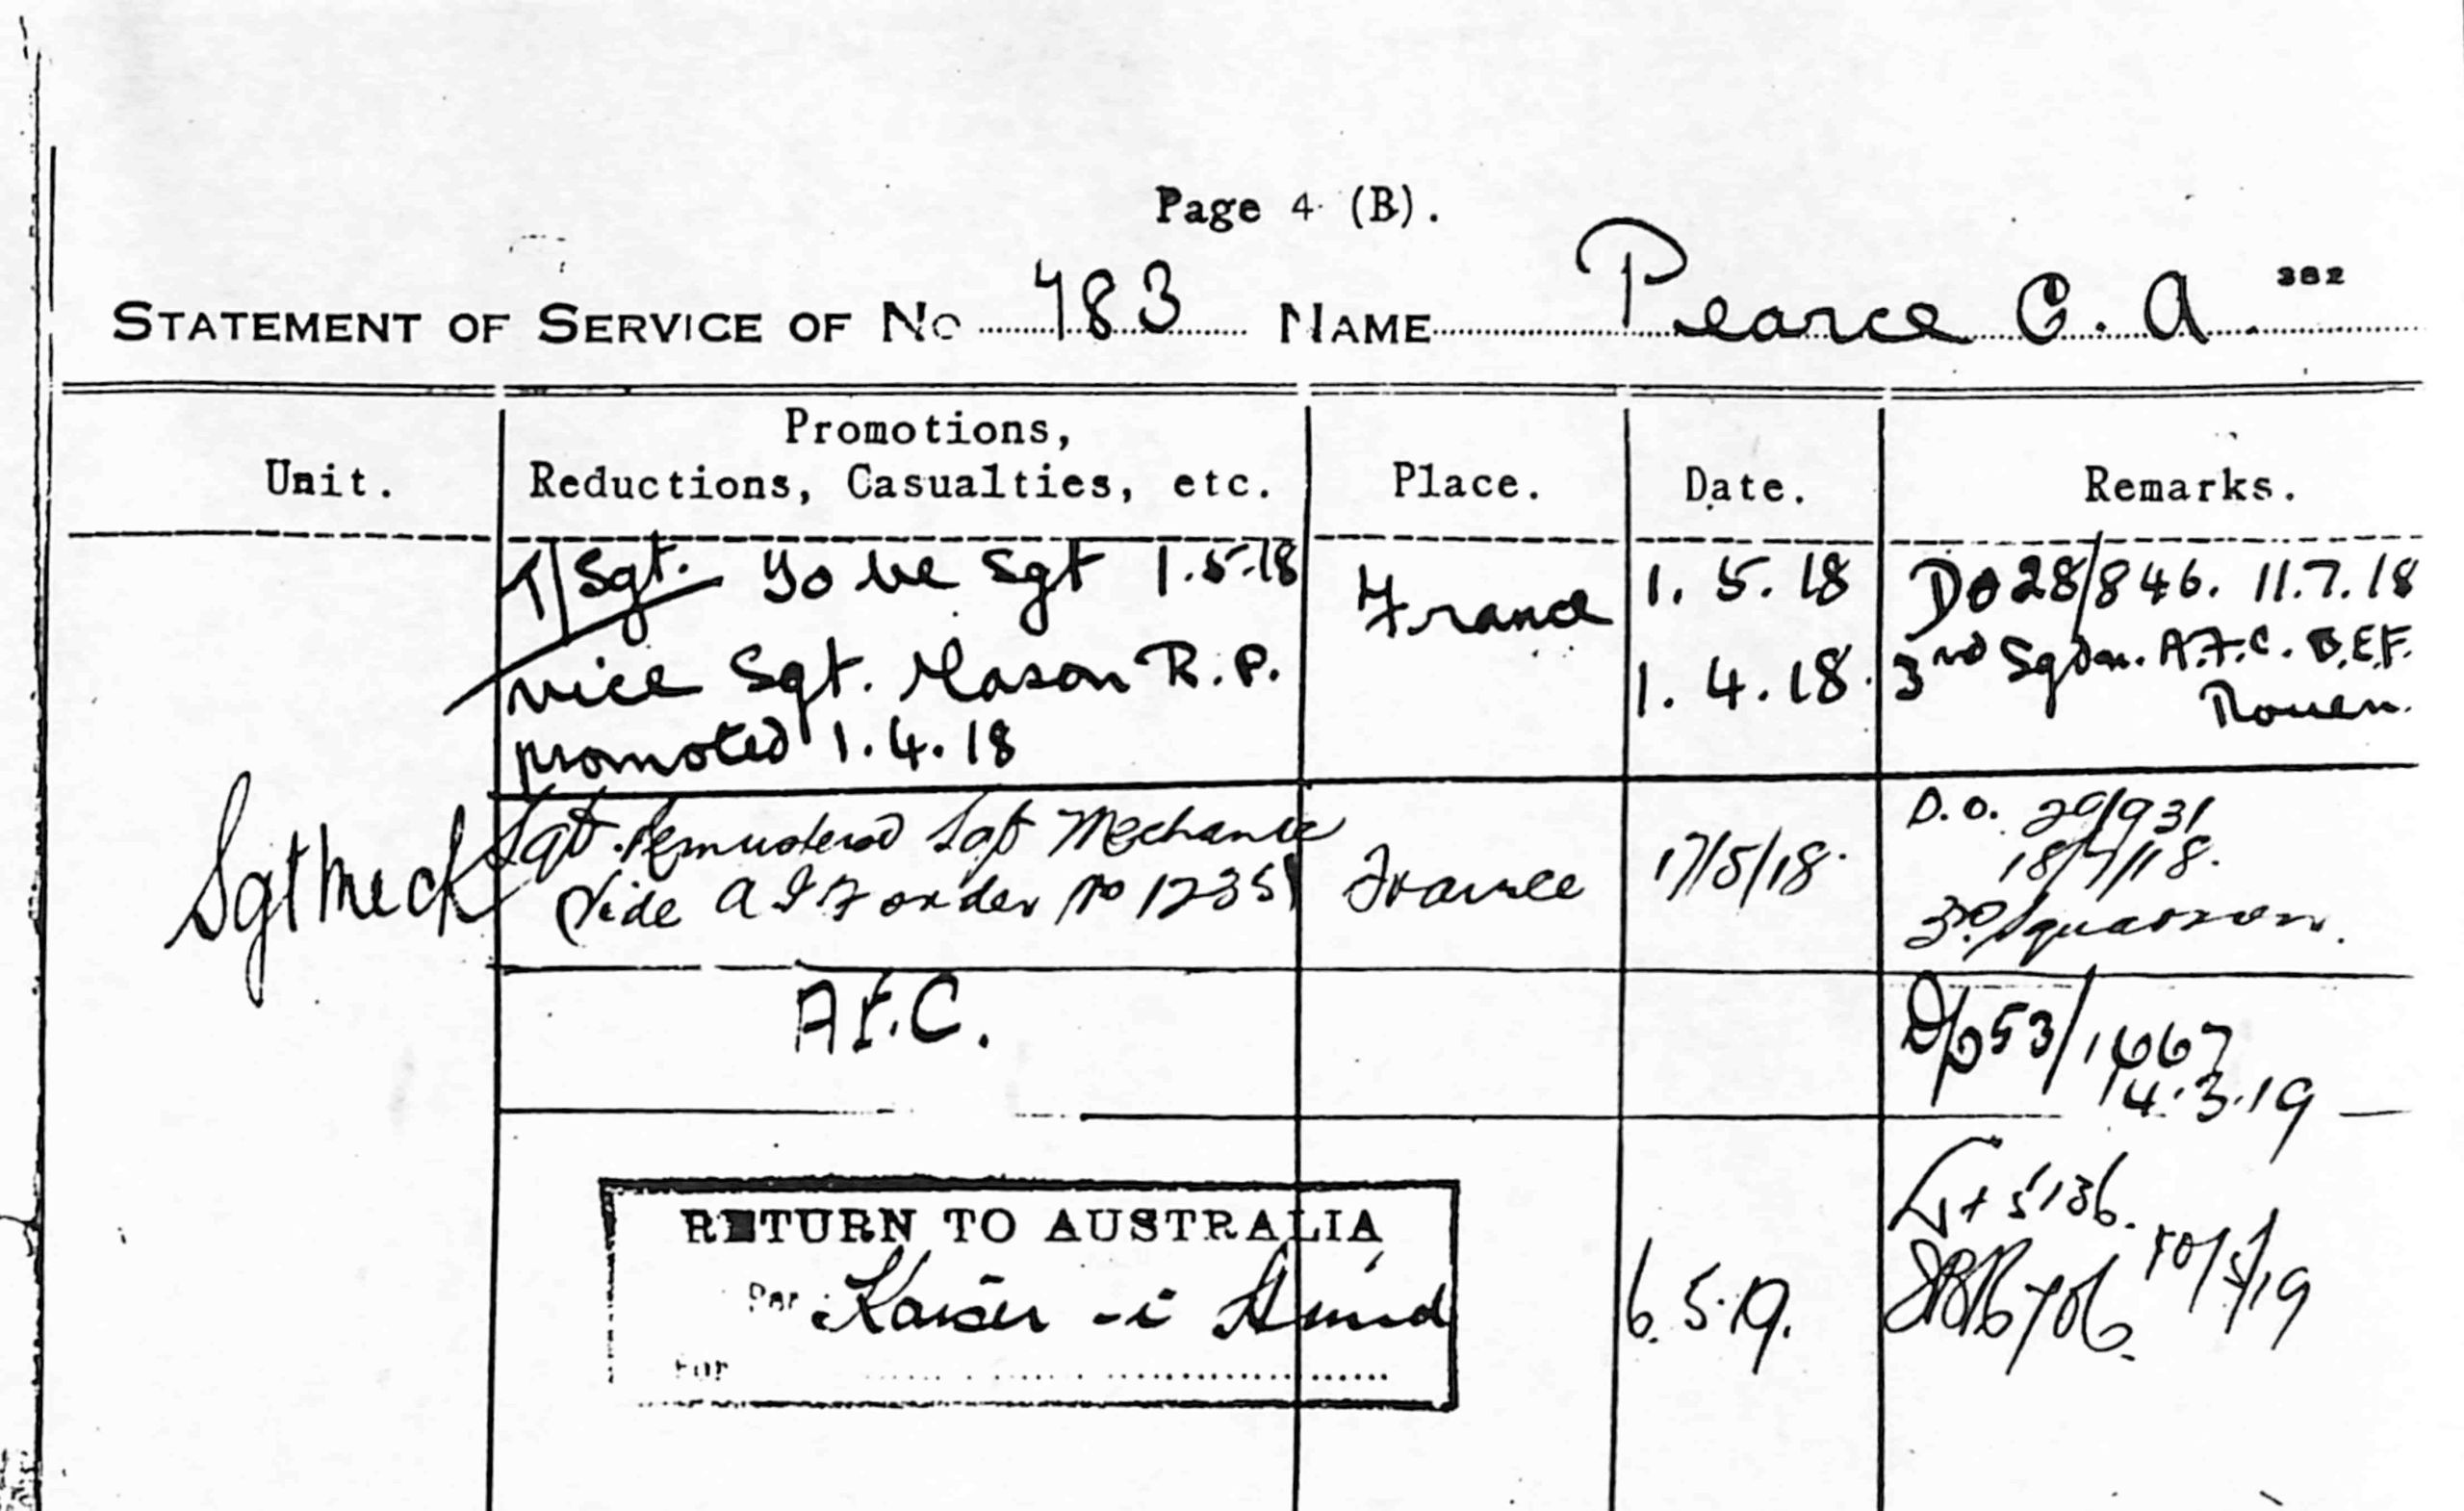 Page 4 (B).
STATEMENT OF SERVICE OF No 483 NAME Pearce C. A. 382
Unit. Promotions, Reductions, Casualties, etc. Place. Date. Remarks.
T/Sgt. To be Sgt 1.5.18 France 1.5.18 DO 28/846. 11.7.18
vice Sgt. Mason R.P. 1.4.18. 3rd Sqdn. A.F.C. B.E.F.
promoted 1.4.18 Rouen.
Sgt Mech Sgt. Remustered Sgt Mechanic France 17/5/18. D.O. 29/931
Vide A I F order No 1235 18/7/18.
3rd Squadron.
A.F.C. D/O 53/1667
14.3.19
RETURN TO AUSTRALIA
Per Kaiser-i-Hind 6.5.19. 10/5/19
For